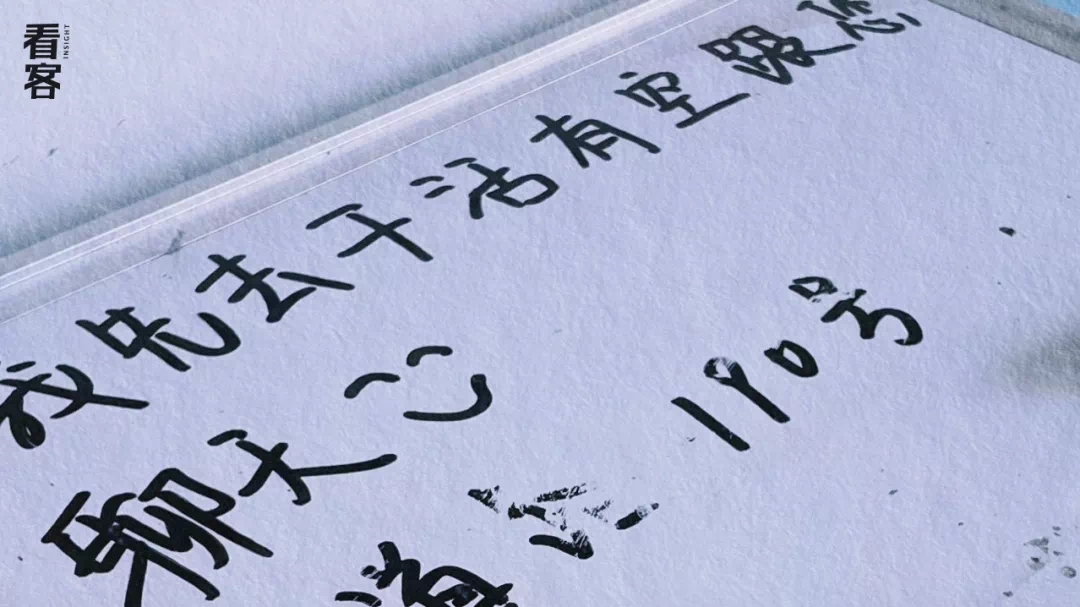 看客
INSIGHT
我先去干活有空跟您
聊天
190号